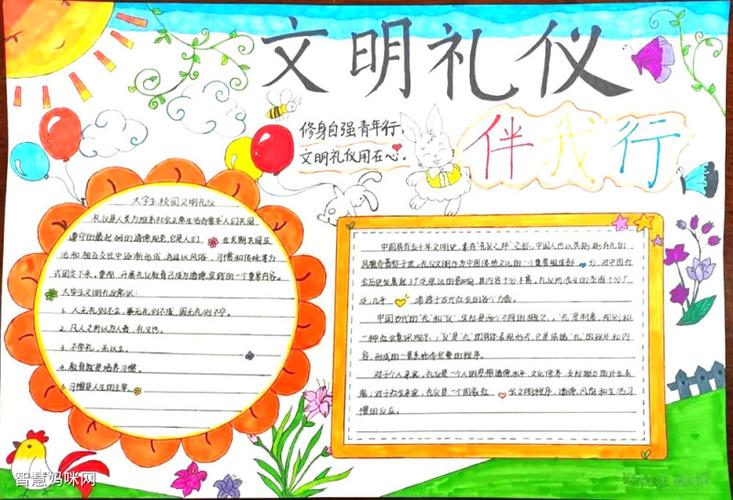 文明礼仪
伴我行
修身自强青年行,
文明礼仪用在心.
大学生校园文明礼仪
礼仪是人类为维系社会正常生活而要求人们共同
遵守的最起码的道德规范,它是人们在长期共同生
活和相互交往中逐渐形成,并且以风俗、习惯和传统等方
式固定下来。重视、开展礼仪教育已成为道德实践的一个重要内容。
大学生文明礼仪
1. 人无礼则不立,事无礼则不成,国无礼则不宁。
2. 凡人之所以为人者,礼义也。
3. 不学礼,无以立。
4. 教育就是培养习惯。
5. 习惯是人生的主宰。
中国具有五千年文明史,素有"礼仪之邦"之称,中国人也以其彬彬有礼的
风貌而著称于世。礼仪文明作为中国传统文化的一个重要组成部分,对中国社
会历史发展起了广泛深远的影响,其内容十分丰富。礼仪所涉及的范围十分广
泛,几乎渗透于古代社会的各个方面。
中国古代的"礼"和"仪",实际是两个不同的概念。"礼"是制度、规则和
一种社会意识观念;"仪"是"礼"的具体表现形式,它是依据"礼"的规定和内
容,形成的一套系统而完整的程序。
对于个人来说,礼仪是一个人的思想道德水平、文化修养、交际能力的外在表
现;对于社会来说,礼仪是一个国家社会文明程序、道德风尚和生活习
惯的反应。
智慧妈咪网